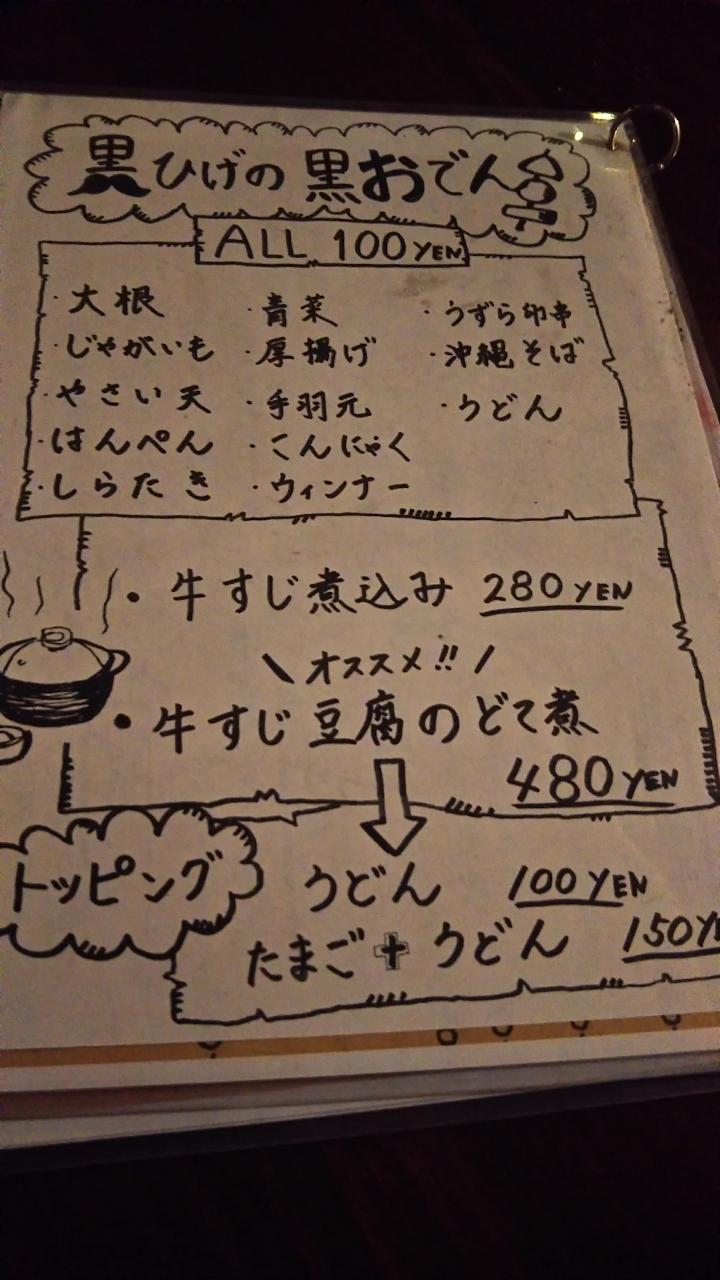 黒ひげの黒おでん
ALL 100 YEN
・大根
・じゃがいも
・やさい天
・はんぺん
・しらたき
・青菜
・厚揚げ
・手羽元
・こんにゃく
・ウィンナー
・うずら卵串
・沖縄そば
・うどん
・牛すじ煮込み 280 YEN
\ オススメ!! /
・牛すじ豆腐のどて煮
480 YEN
トッピング
うどん 100 YEN
たまご+うどん 150 YE